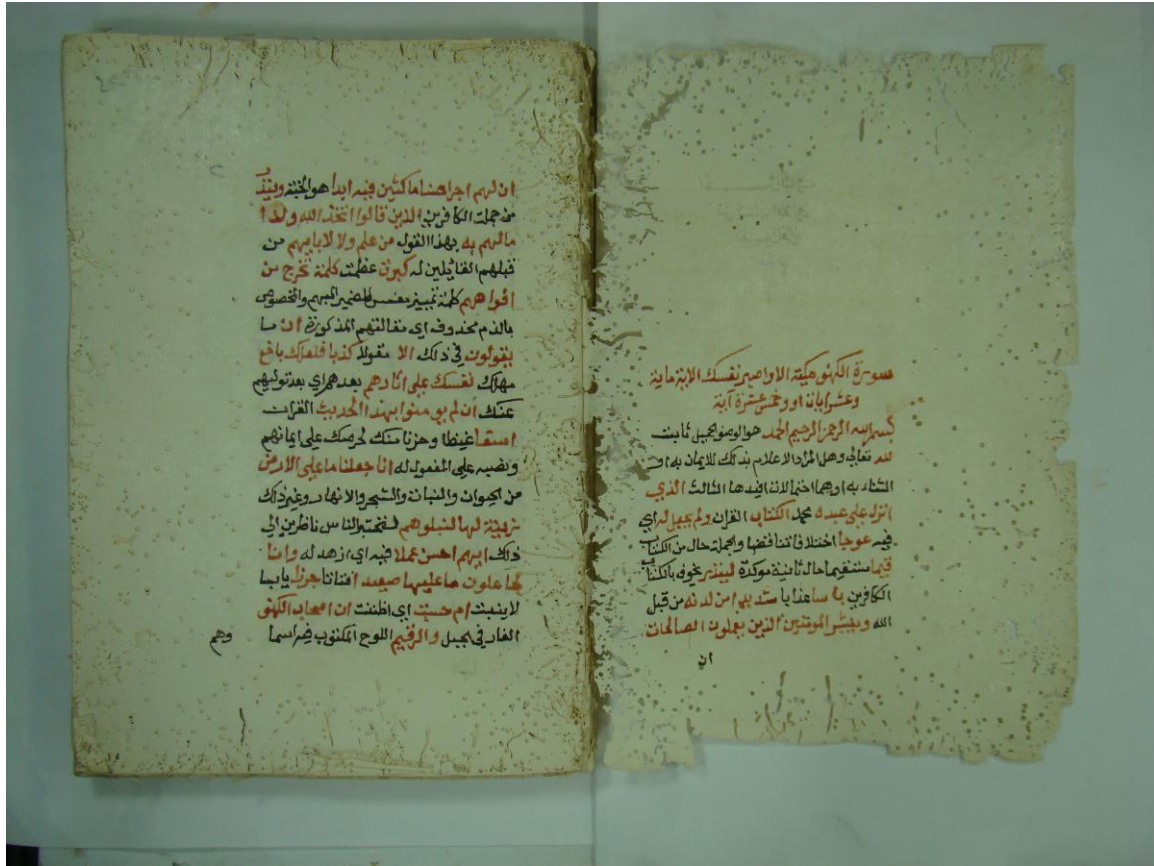 سورة الكهف مكية الا واصبر نفسك الاية ماية
وعشر ايات او وخمس عشرة آية
بسم الله الرحمن الرحيم الحمد هو الوصف بالجميل ثابت
لله تعالى وهل المراد الاعلام بذلك للايمان به او
الثناء به او هما احتمالات افيدها الثالث الذي
انزل على عبده محمد الكتاب القران ولم يجعل له اي
فيه عوجا اختلافا تناقضا والجملة حال من الكتاب
قيما مستقيما حال ثانية موكدة لينذر يخوف بالكتاب
الكافرين باسا عذابا شديدا من لدنه من قبل
الله ويبشر المومنين الذين يعلمون الصالحات
ان
ان لهم اجرا حسنا ماكثين فيه ابدا هو الجنة وينذر
من جملة الكافرين الذين قالوا اتخذ الله ولدا
مالهم به بهذا القول من علم ولا لابايهم من
قبلهم القايلين له كبرت عظمت كلمة تخرج من
افواههم كلمة تمييز مفسر للضمير المبهم والمخصوص
بالذم محذوف اي مقالتهم المذكورة ان ما
يقولون في ذلك الا مقولا كذبا فلعلك باخع
مهلك نفسك على اثارهم بعدهم اي بعد توليهم
عنك ان لم يومنوا بهذا الحديث القران
اسفا غيظا وحزنا منك لحرصك على ايمانهم
ونصبه على المفعول له انا جعلنا ما على الارض
من الحيوان والنبات والشجر والانهار وغير ذلك
زينة لها لنبلوهم لنختبر الناس ناظرين الى
ذلك ايهم احسن عملا فيه اي ازهد له وانا
لجاعلون ما عليها صعيدا فتاتا جرزا يابسا
لا ينبت ام حسبت اي اظننت ان اصحاب الكهف
الغار في الجبل والرقيم اللوح المكتوب فيه اسما
وهم